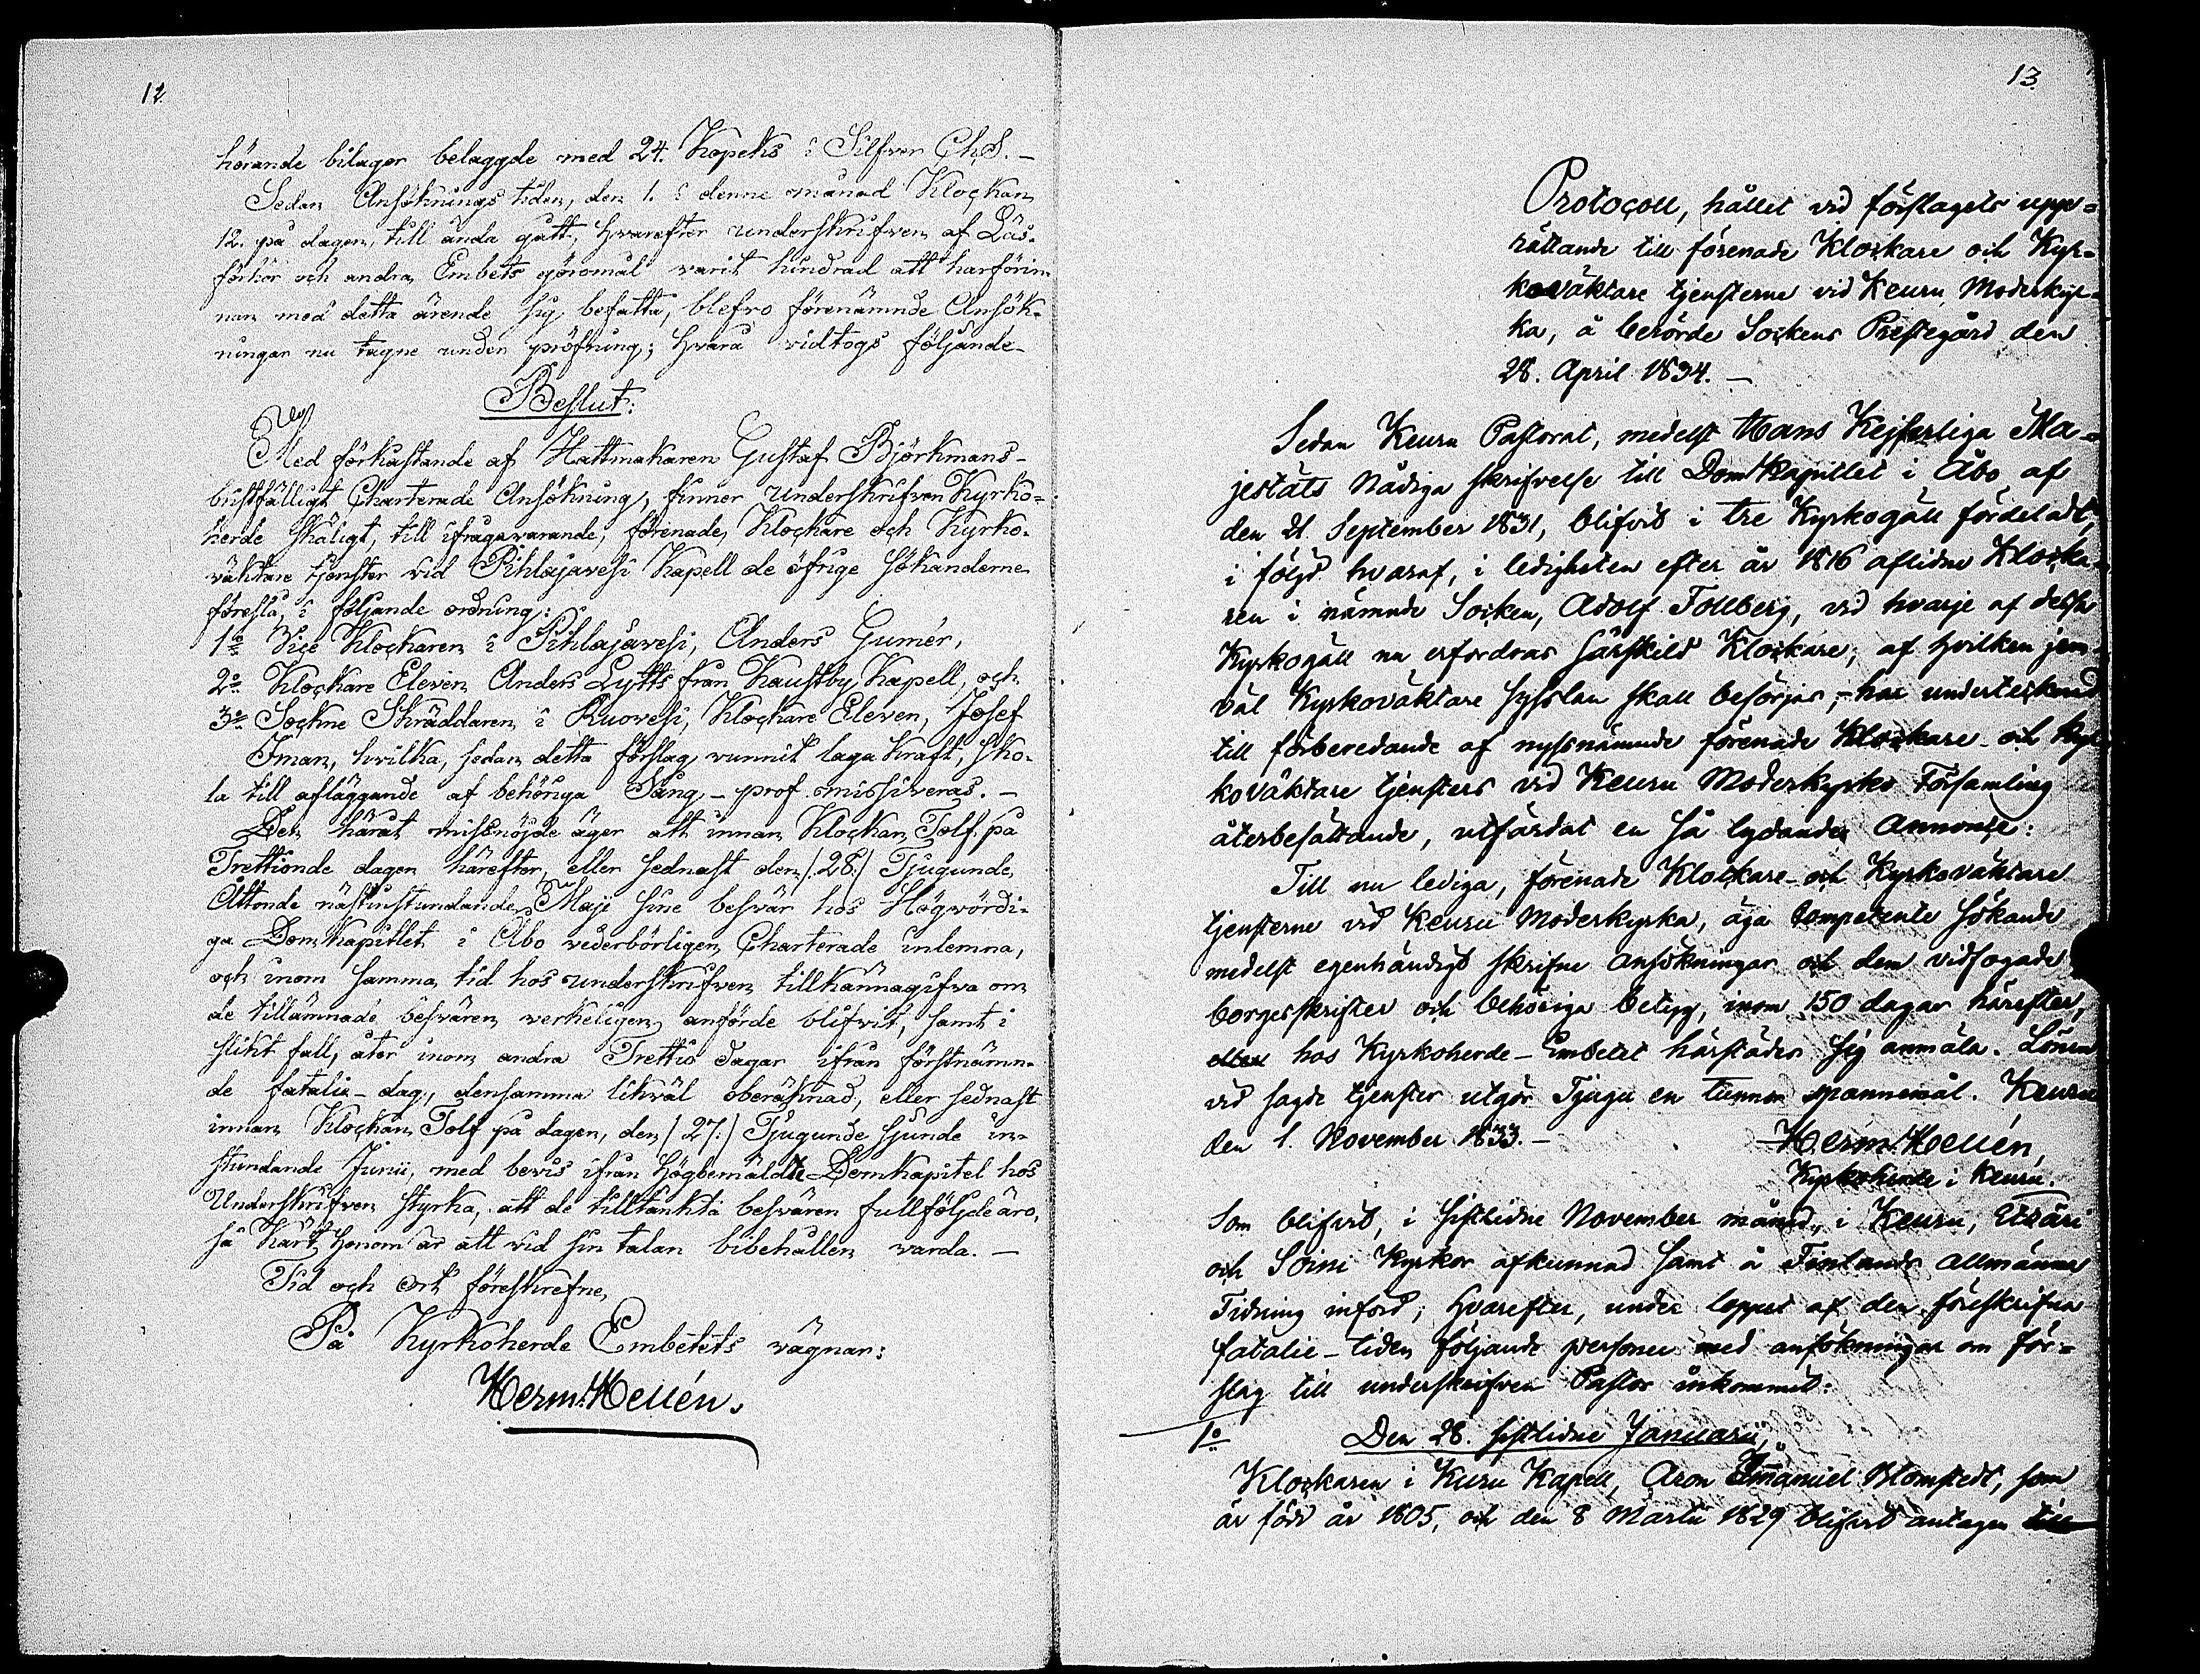 12.
hörande bilagor belaggde med 24. Kopeks i Silfver Ch. S. -
Sedan Ansöknings tiden, den 1. i denne månad Klockan
12. på dagen, till ända gått, hvarefter underskrifven af Läs-
förhör och andra Embets göromål varit hindrad att härförin-
nan med detta ärende sig befatta, blefvo förenämnde Ansök-
ningar nu tagne under pröfning; hvará vidtogs följande
Beslut:
Med förkastande af Hattmakaren Gustaf Björkmans
bristfälligt Charterade Ansökning, finner Underskrifven Kyrko-
herde skäligt, till ifrågavarande, förenade Klockare och Kyrko-
väktare tjenster vid Pihlajavesi Kapell de öfrige sökanderne
föreslå, i följande ordning:
1o Vice Klockaren i Pihlajavesi, Anders Gumér,
2o Klockare Eleven Anders Lytts från Kaustby Kapell, och
3o Sockne Skräddaren i Ruovesi, Klockare Eleven, Josef
Iman, hvilka, sedan detta förslag vunnit laga kraft, sko-
la till afläggande af behöriga Sång-prof missiveras. -
Den häråt missnöjde äger att innan Klockan Tolf på
Trettionde dagen härefter, eller sednast den /:28:/ Tjugunde
Åttonde nästinstundande Maji sine besvär hos Högvördi-
ga DomKapitlet i Åbo vederbörligen Charterade inlemna,
och inom samma tid hos underskrifven tillkännagifva om
de tillämnade besvären verkeligen anförde blifvit, samt i
slikt fall, åter inom andra Trettio dagar ifrån förstnämn-
de fatalie-dag, densamma likväl oberäknad, eller sednast
innan Klockan Tolf på dagen, den /:27:/ Tjugunde Sjunde in-
stundande Junii, med bevis ifrån Högbemälde Domkapitel hos
Underskrifven styrka, att de tilltänkta besvären fullföljde äro,
så kärt honom är att vid sin talan bibehållen varda. -
Tid och ort föreskrefne,
På Kyrkoherde Embetets vägnar:
Herm. Hellén.
13.
Protocoll, hållit vid förslagets upp-
rättande till förenade Klockare och Kyr-
koväktare tjensterne vid Keuru Moderkyr-
ka, å berörde Sockens Prestegård den
28. April 1834. -
Sedan Keuru Pastorat, medelst Hans Kejserliga Ma-
jestäts Nådiga skrifvelse till DomKapittlet i Åbo af
den 21 September 1831, blifvit i tre Kyrkogäll fördeladt,
i följd hvaraf, i ledigheten efter år 1816 aflidne Klocka-
ren i nämnde Socken, Adolf Tollberg, vid hvarje af dessa
Kyrkogäll nu erfordras särskild Klockare, af hvilken jem-
väl Kyrkoväktare sysslan skall besörjas; - har undertecknad
till förberedande af nyssnämnde förenade Klockare- och Kyr-
koväktare tjensters vid Keuru Moderkyrko Församling
återbesättande, utfärdat en så lydande Annonce:
Till nu lediga, förenade Klockare- och Kyrkoväktare
tjensterne vid Keuru Moderkyrka, äga competente sökande
medelst egenhändigt skrifne ansökningar och dem vidfogade
borgesskrifter och behöriga betyg, inom 150 dagar härefter,
hos Kyrkoherde-Embetet härstädes sig anmäla. Lönen
vid sagde tjenster utgör Tjugu en tunnor spannemål. Keuru
den 1. November 1833. -
Herm. Hellén,
Kyrkoherde i Keuru.
Som blifvit, i sistlidne November månad, i Keuru, Etzäri
och Soini Kyrkor afkunnad samt å Finlands Allmänna
Tidning införd; hvarefter, under loppet af den föreskrifna
fatalie-tiden följande personer med ansökningar om för-
slag till underskrifven Pastor inkommit:
1o Den 28. sistlidne Januarii,
Klockaren i Kuru Kapell, Aron Emanuel Blomstedt, som
är född år 1805, och den 8 Martii 1829 blifvit antagen till